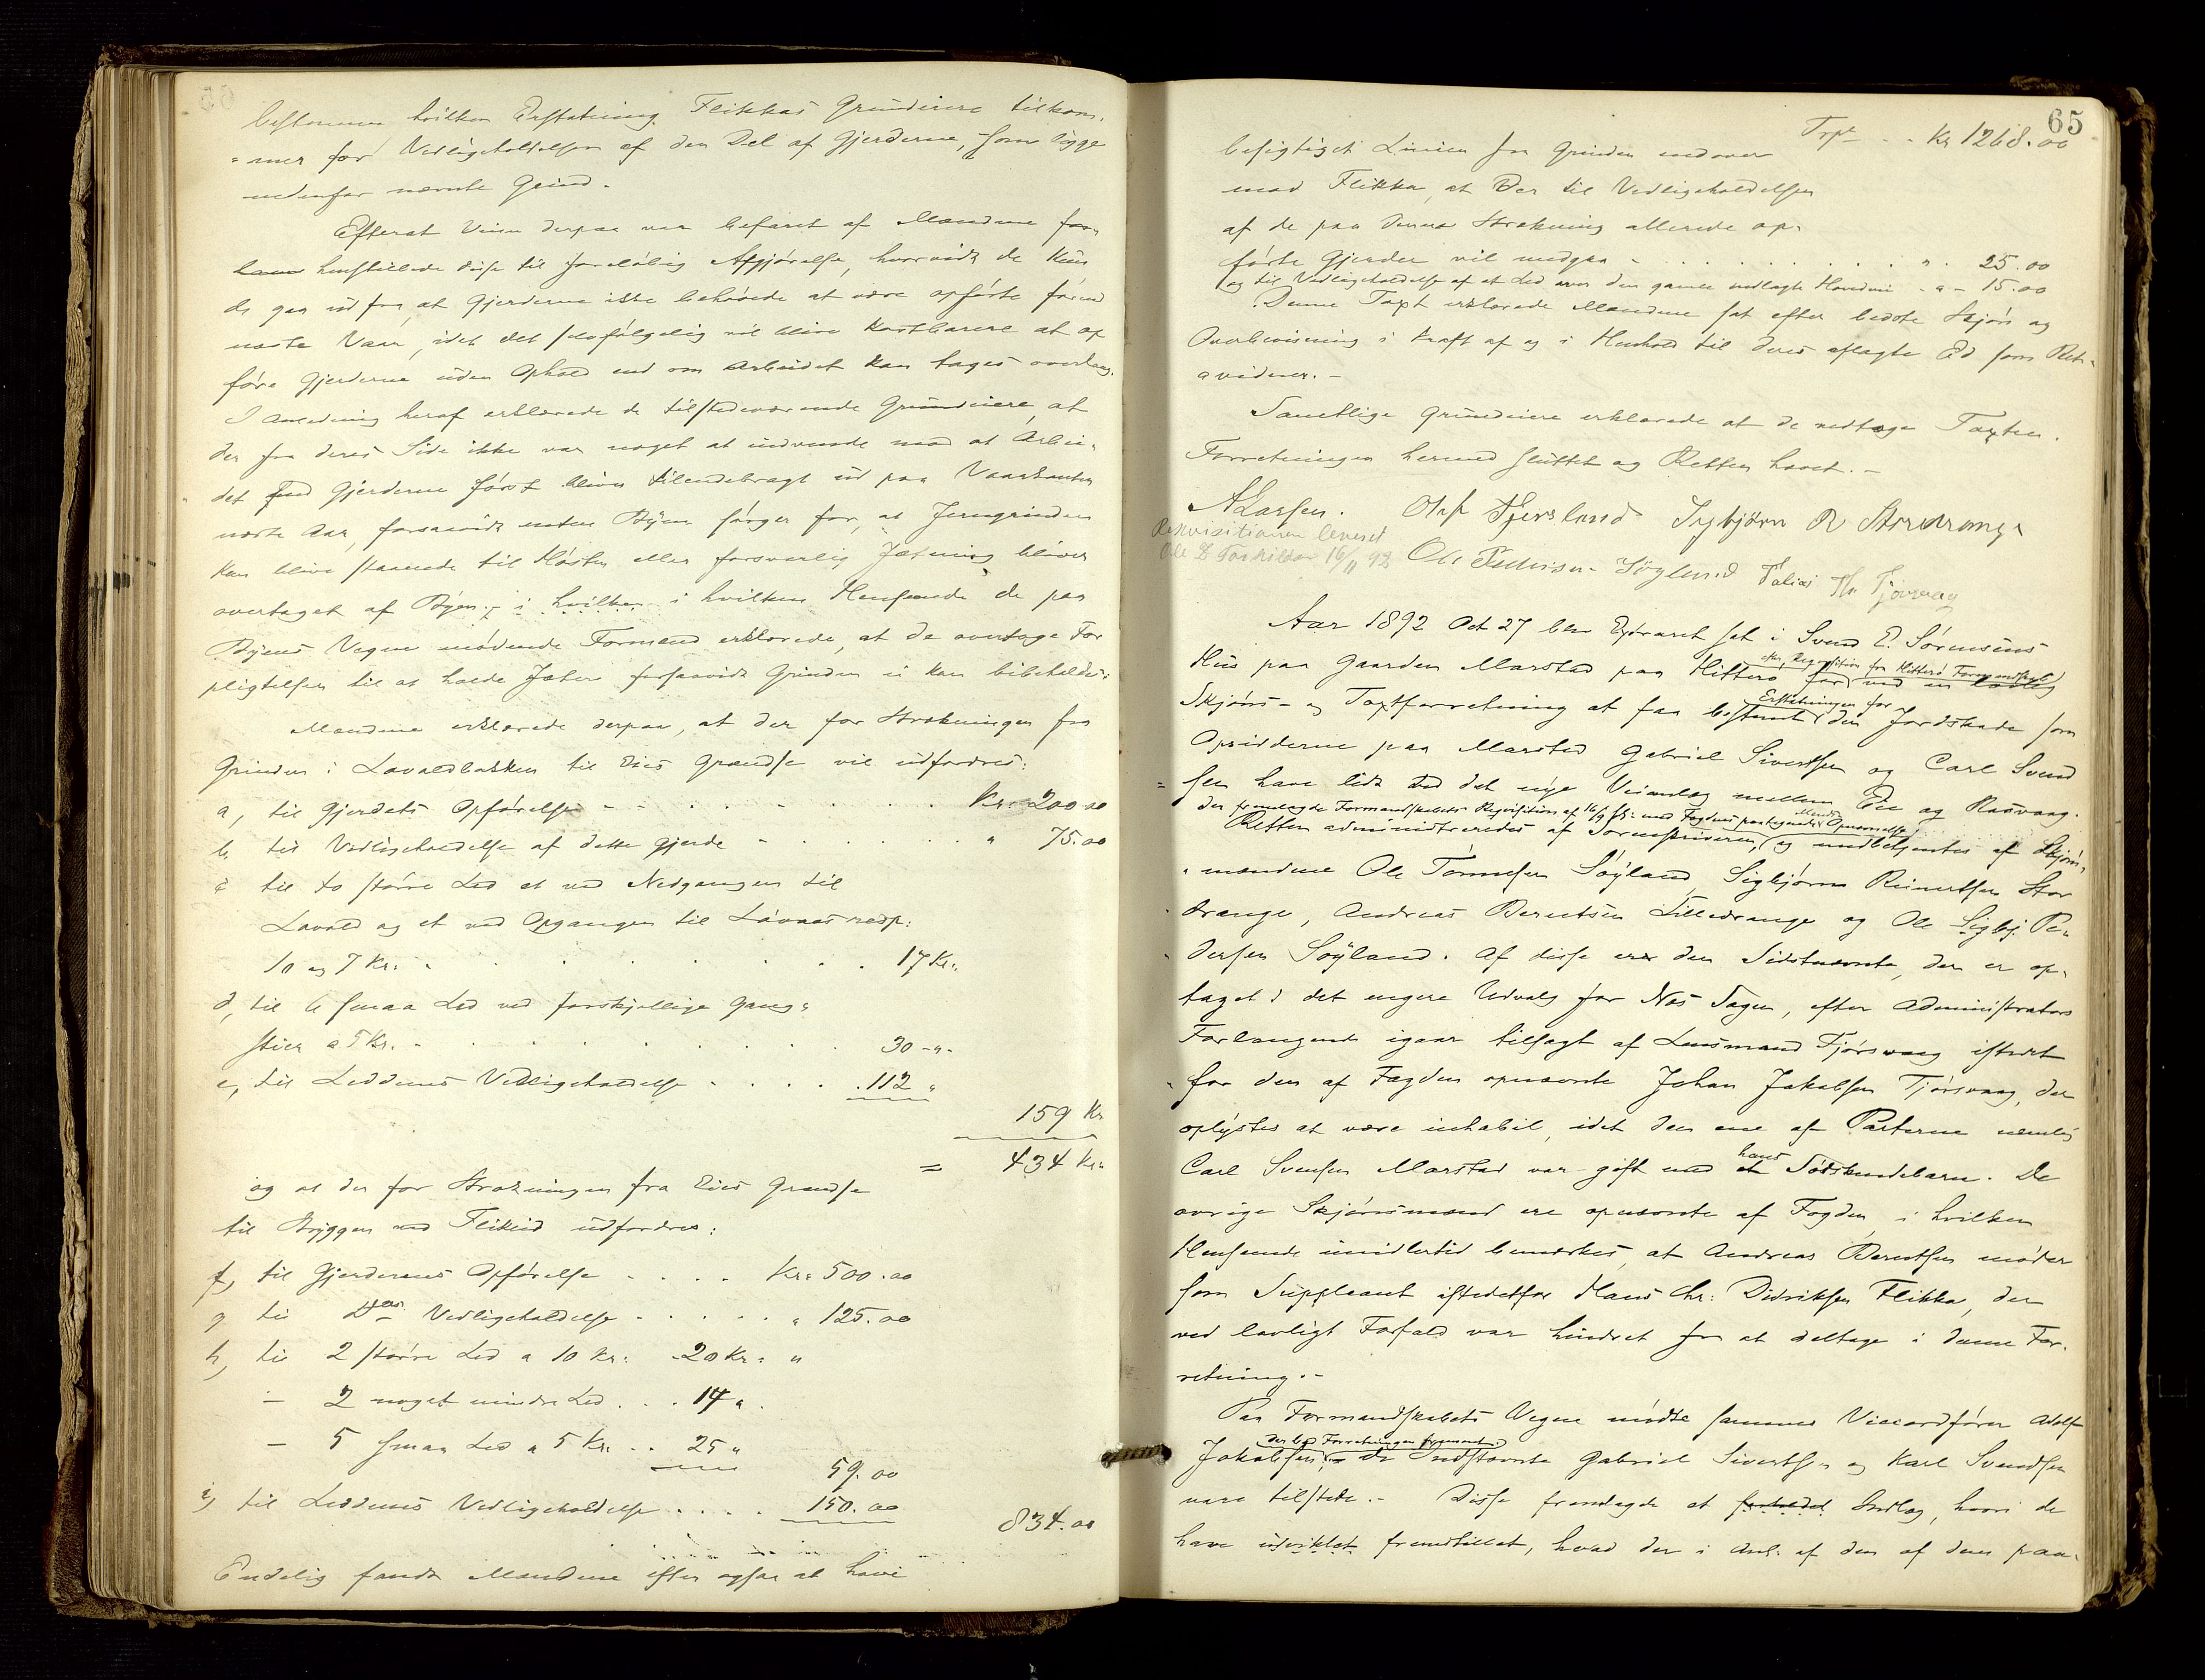 bestemme hvilken Erstatning Flikkas Grundeiere tilkom-
mer for Vedligeholdelsen af den Del af Gjerderne, som ligge
nedenfor nævnte Grind.
Efterat Veien derpaa var befaret af Mændene
henstillede disse til foreløbig Afgjørelse, hvorvidt de kun-
de gaa ud fra, at Gjerderne ikke behøvede at være opførte førend
næste Vaar, idet det selvfølgelig vil blive kostbarere at op
føre Gjerderne uden Ophold end om Arbeidet kan tages overlang.
I Anledning heraf erklærede de tilstedeværende Grundeiere, at
der fra deres Side ikke var noget at indvende mod at Arbei-
det med Gjerderne først bliver tilendebragt ud paa Vaarkanten
næste Aar, forsaavidt enten Byen sørger for, at Jerngrinden
kan blive staaende til Høsten eller forsvarlig Jætning bliver
overtaget af Byen; i hvilken i hvilken Henseende de paa
Byens Vegne mødende Formænd erklærede, at de overtage For
pligtelsen til at holde Jæter forsaavidt Grinden ei kan bibeholdes.
Mændene erklærede derpaa, at der for Strækningen fra
Grinden i Lavoldbakken til Eies Grændse vil udfordres:
a, til Gjerdets Opførelse - - - Kr. 200.00
b, til Vedligeholdelse af dette Gjerde - - - " 75.00
c til to større Led et ved Nedgangen til
Lavold og et ved Opgangen til Løvnæs resp:
10 og 7 Kr. - - - 17 Kr.
d, til 6 smaa Led ved forskjellige Gang-
stier a 5 Kr. - - - 30 -"-
e, til Leddenes Vedligeholdelse . . . . 112 "
159 Kr
= 434 Kr.
og at der for Strækningen fra Eies Grændse
til Bryggen ved Flikeid udfordres:
f, til Gjerdernes Opførelse . . . . Kr. 500.00
g til Do Vedligeholdelse . . . . " 125.00
h, til 2 større Led a 10 Kr. 20 Kr. "
— 2 noget mindre Led . . . 14 " .
— 5 smaa Led a 5 Kr. . . 25 "
59.00
i, til Leddenes Vedligeholdelse . . . . 150.00
834.00
Endelig fandt Mændene efter ogsaa at have
65
Trpt - - Kr 1268.00
besigtiget Linien fra Grinden nedover
mod Flikka, at der til Vedligeholdelsen
af de paa denne Strækning allerede op-
førte Gjerder vil medgaa - . . . . . " . 25.00
og til Vedligeholdelse af et Led over den gamle nedlagte Hovedvei - " - 15.00
Denne Taxt erklærede Mændene sat efter bedste Skjøn og
Overbevisning i Kraft af og i Henhold til deres aflagte Ed som Rets-
vidner. -
Samtlige Grundeiere erklærede at de vedtoge Taxten.
Forretningen hermed sluttet og Retten hævet. -
A Larsen. Olaf Fjersland Sigbjørn R Stordrange
Rekvisitionen leveret
Ole B Torkildsen 16/11 92
Ole Pedersen Søyland Tobias Th. Tjørsvaag
Aar 1892 Oct 27 blev Extraret sat i Svend E. Sørensens
Hus paa Gaarden Marstad paa Hitterø
efter Reqvisition fra Hitterø Formandskab
for ved en lovlig
Skjøns- og Taxtforretning at faa bestemt
Erstatningen for
den Jordskade som
Opsidderne paa Marstad Gabriel Sivertsen og Carl Svend
sen have lidt ved det nye Veianlæg mellem Eie og Rasvaag.
der fremlagde Formandskabets Reqvisition af 16/9 ds: med Fogdens paategnede Mænds Opnævnelse,
Retten administreredes af Sorenskriveren, og medbetjentes af Skjøns-
mændene Ole Tønnesen Søyland, Sigbjørn Reinertsen Stor
drange, Andreas Berntsen Lilledrange og Ole Sigbj. Pe-
dersen Søyland. Af disse er den Sidstnævnte, der er op-
taget i det engere Udvalg for Næs Sogn, efter Administrators
Forlangende igaar tilsagt af Lensmand Tjørsvaag istedet
for den af Fogden opnævnte Johan Jakobsen Tjørsvaag, der
oplystes at være inhabil, idet den ene af Parterne nemlig
Carl Svensen Marstad var gift med
hans
et Sødskendebarn. De
øvrige Skjønsmænd ere opnævnte af Fogden, i hvilken
Henseende imidlertid bemærkes, at Andreas Berntsen møder
som Suppleant istedetfor Hans Chr. Didriksen Flikka, der
ved lovligt Forfald var hindret fra at deltage i denne For-
retning. -
Paa Formandskabets Vegne mødte sammes Viceordfører Adolf
Jakobsen,
der bad Forretningen fremmet.
De Indstævnte Gabriel Sivertsen og Karl Svendsen
vare tilstede. - Disse fremlagde et Indlæg, hvori de
have udviklet fremstillet, hvad der i Anl. af den af dem paa-